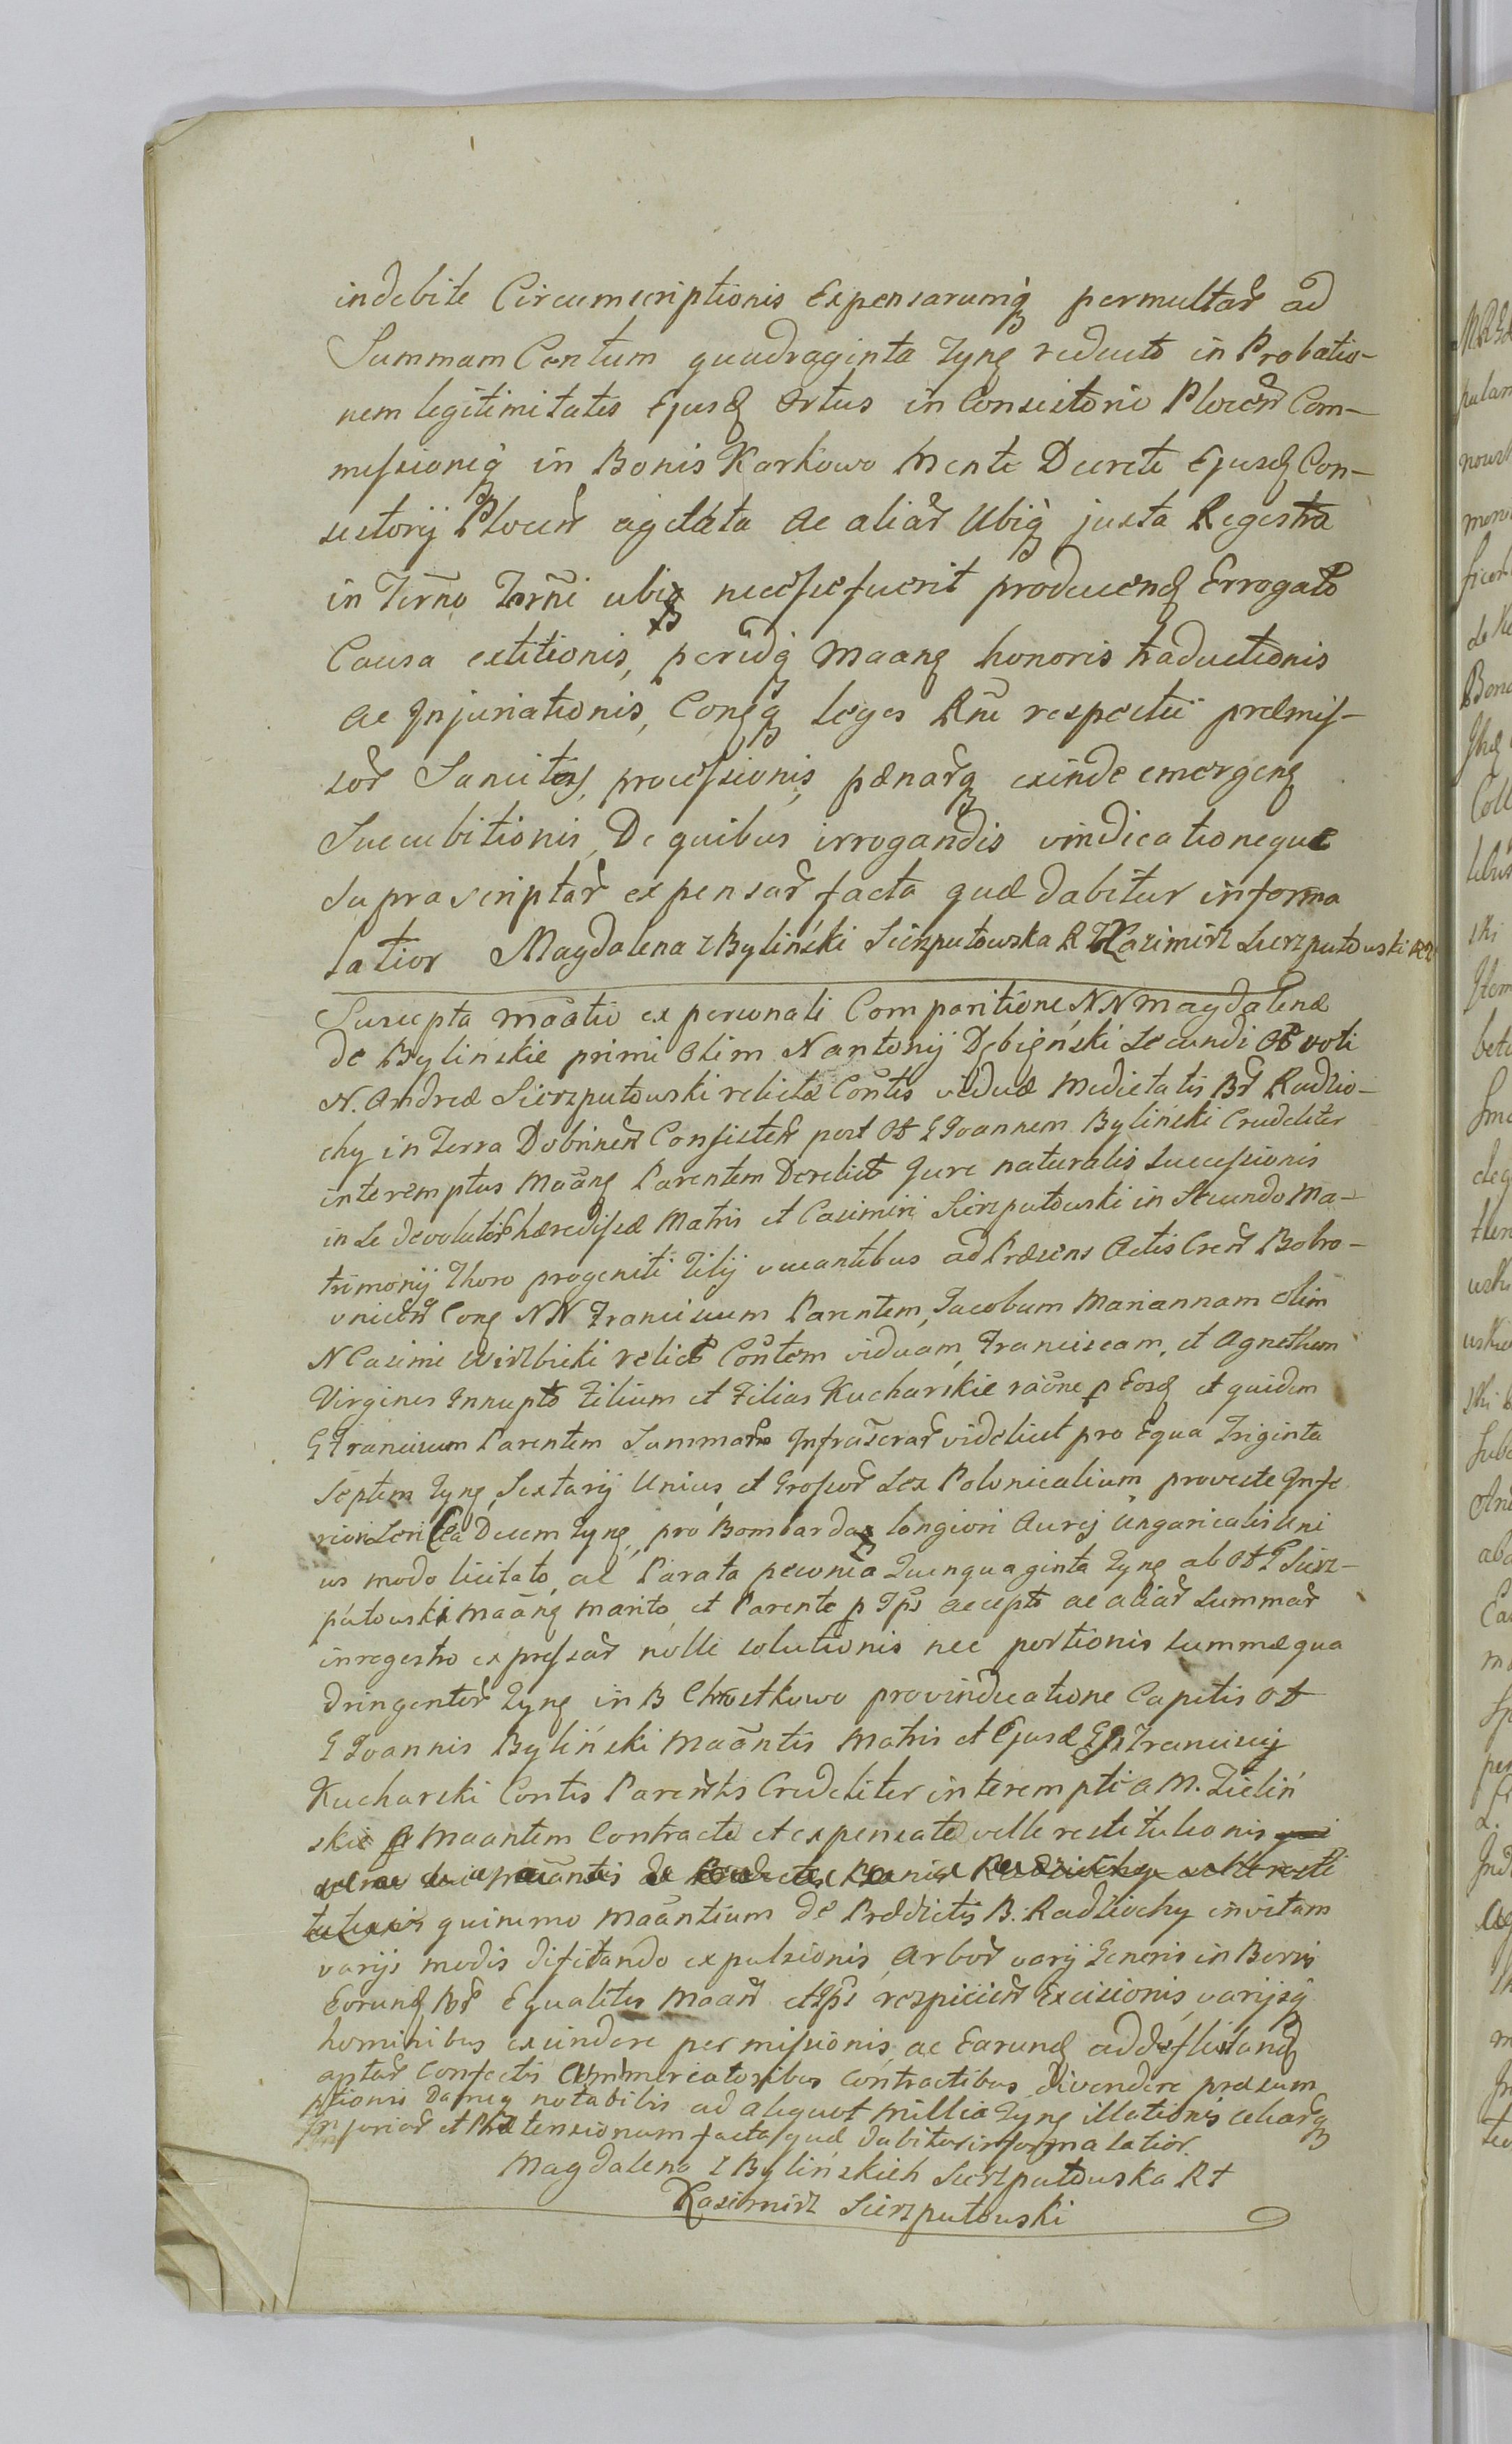 indebite Circumscriptionis Expensarumq permultar ad
Summam Centum quadraginta Tynf reducto in Probatio-
nem legitimitatis Ejusd Ortus in Consistorio Plocen Com-
missioneq in Bonis Karkowo Mente Decreti Ejusd Con-
sistorij Plocen agitata ac aliar Ubiq juxta Regestra
in Terno Terni ubi necesse fuerit producend Errogato
Causa extitionis, perindq Maang honoris traductionis
ac Injuriationis, Conq leges Rni respectu præmis-
sor Sancitas, processionis, pænarq exinde emergen
Succubitionis, De quibus irrogandis vindicationeque
suprascriptar expensar facta quæ dabitur in forma
latior Magdalena z Byliński Sierzputowska Kazimirz Sierzputowski
Suscepta maatio ex personali Comparitione NN Magdalenæ
de Bylińskie primi Olim N Antonij Dębieński Secundi Ol voti
N. Andreæ Sierzputowski relictæ Contis viduæ Medietatis Br Radzio-
chy in Terra Dobrinen Consisten post Ol G Joannem Byliński Crudeliter
interemptus Maang Parentem Derelict Jure naturalis successionis
in se devolutor hæredissæ Matris et Casimiri Sierzputowski in Secundo Ma-
trimonij Thoro progeniti Filij vacantibus ad Præsens Actis Cren Bobro-
vnicen Conq NN Franciscum Parentem, Jacobum Mariannam Olim
N Casimi Wirzbicki relict Contem viduam, Franciscam, et Agnethem
Virgines Innupts Filium et Filias Kucharskie raone p Eosd et quidem
G Franciscum Parentem Summar Infrascrar videlicet pro Equa Triginta
Septem Tynf, Sextarij Unius, et Grossor Sex Polonicalium proveste Infe
riori Decem Tynf, pro Bombarda longiori Aurej Ungaricalis Uni
us modo licitato, ac Parata pecunia Quinquaginta Tynf ab Ol G Sierz-
putowski maang marito, et Parente p Ips accept ac aliar summar
inregestro expressar nolle solutionis nec portionis summæ qua
dringentor Tynf in B Chrostkowo provindicatione Capitis Ol
G Joannis Byliński Maantis Matris et Ejusd G Francisci
Kucharski Contis Parentis Crudeliter interempti a M. Zieliń
skie p Maantem Contracte et expensate velle restitutionis
quinimo Maantium de Prædictis B. Radziochy invitam
varijs modis disitando expulsionis, Arbor varij Generis in Bonis
Eorund Br Equaliter Maan et Ips respicien Excisionis, varijsq
hominibus exindere permissionis, ac Earund
aptar Confectis Cummercatoribus Contractibus divendere præsum
ptionis Damniq notabilis ad aliquot Millia Tynf illationis aliarq
Injuriar et Prætensionum facta quæ dabitur in forma latior.
Magdalena z Bylińskich Sierzputowska
Kazimirz Sierzputowski